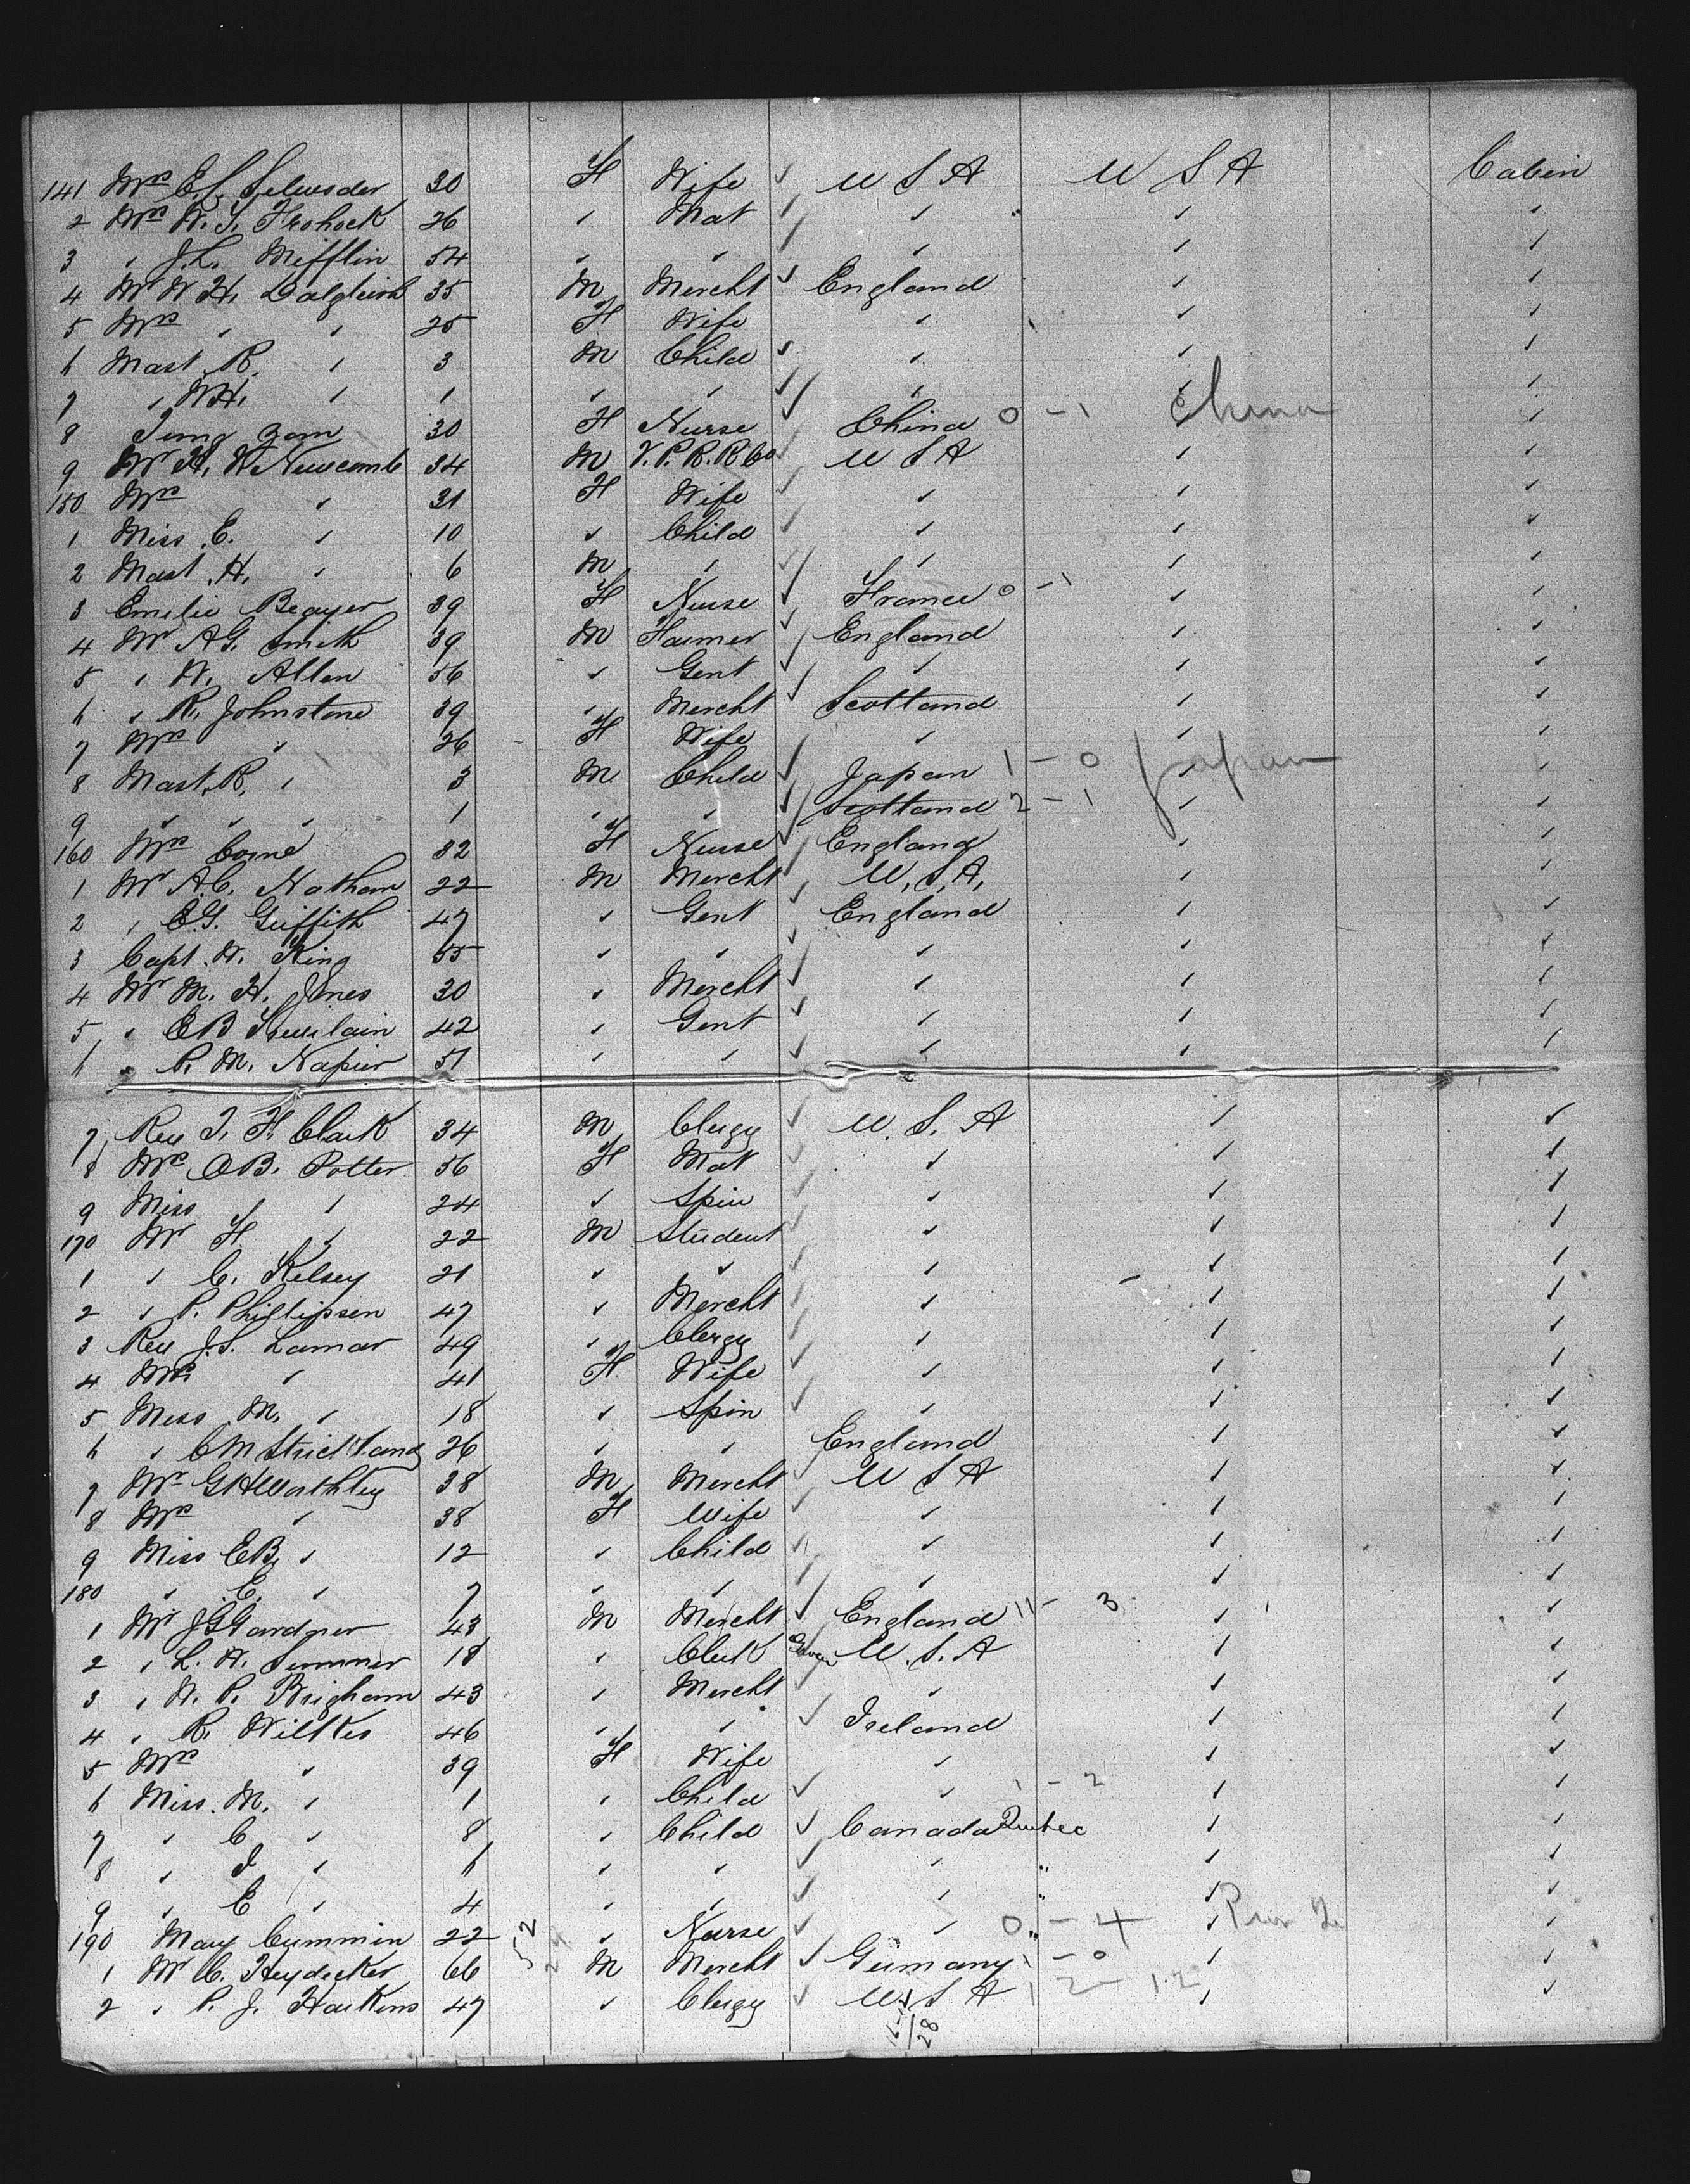 141 Mrs E.S. 30 F Wife ✓ U S A U S A Cabin
2 Mrs W. S. Frohock 26 " Mat ✓ " " "
3 " J.L. Mifflin 54 " " ✓ " " "
4 Mr W H. Dalgleish 35 M Mercht ✓ England " "
5 Mrs " " 25 F Wife " " "
6 Mast. R. " 3 M Child ✓ " " "
7 " W.H. " 1 " " ✓ " " "
8 Tung Zom 30 F Nurse ✓ China 0 - 1 " China "
9 Mr H. W Newcomb 34 M V.P.R.R Co ✓ U S A " "
150 Mrs " 31 F Wife ✓ " " "
1 Miss E. " 10 " Child ✓ " " "
2 Mast. H. " 6 M " ✓ " " "
3 Emilie Beayer 39 F Nurse ✓ France 0 - 1 " "
4 Mr A G. Smith 39 M Farmer ✓ England " "
5 " W. Allen 56 " Gent ✓ " " "
6 " R. Johnstone 39 " Mercht ✓ Scotland " "
7 Mrs " 26 F Wife " " "
8 Mast. R. " 3 M Child ✓ Japan 1 - 0 " Japan "
9 " " " 1 " " ✓ Scotland 2 - 1 " "
160 Mrs 32 F Nurse ✓ England " "
1 Mr A.C. Nathan 22 M Mercht ✓ U. S. A. " "
2 " E.G. Griffith 47 " Gent England " "
3 Capt. W. King 55 " " ✓ " " "
4 Mr M. H. Jones 30 " Mercht ✓ " " "
5 " E B 42 " Gent ✓ " " "
6 " P. M. Napier 51 " " ✓ " " "
7 Rev J. F. Clark 34 M Clergy ✓ U. S. A " "
8 Mrs O B. Potter 56 F Mat ✓ " " "
9 Miss " " 24 " Spin ✓ " " "
170 Mr F " 22 M Student ✓ " " "
1 " C. Kelsey 21 " " ✓ " " "
2 " P. Phillipsen 47 " Mercht ✓ " " "
3 Rev J.S. Lamar 49 " Clergy ✓ " " "
4 Mrs " 41 F Wife ✓ " " "
5 Miss M. " 18 " Spin ✓ " " "
6 " C M Strickland 26 " " England " "
7 Mr G H Worthley 38 M Mercht ✓ U S A " "
8 Mrs " 38 F Wife ✓ " " "
9 Miss E B, " 12 " Child ✓ " " "
180 " C. " 7 " " ✓ " " "
1 Mr J G Gardner 43 M Mercht ✓ England 11 - 3 " "
2 " L. W. Sumner 18 " Clerk U. S. A " "
3 " W. P. Brigham 43 " Mercht " " "
4 " R. Wilkes 46 " " ✓ Ireland " "
5 Mrs " 39 F Wife " " "
6 Miss. M. " 1 " Child ✓ " 1 - 2 " "
7 " C " 8 " Child ✓ Canada Quebec " "
8 " J " 6 " " ✓ " " " "
9 " E " 4 " " ✓ " " " "
190 Mary Cummin 22 52 " Nurse " 0 " - 4 " "
1 Mr C. Heydecker 66 M Mercht ✓ Germany 1 - 0 " "
2 " P. J. Harkins 47 " Clergy ✓ U. S A 12 - 12 " "
28